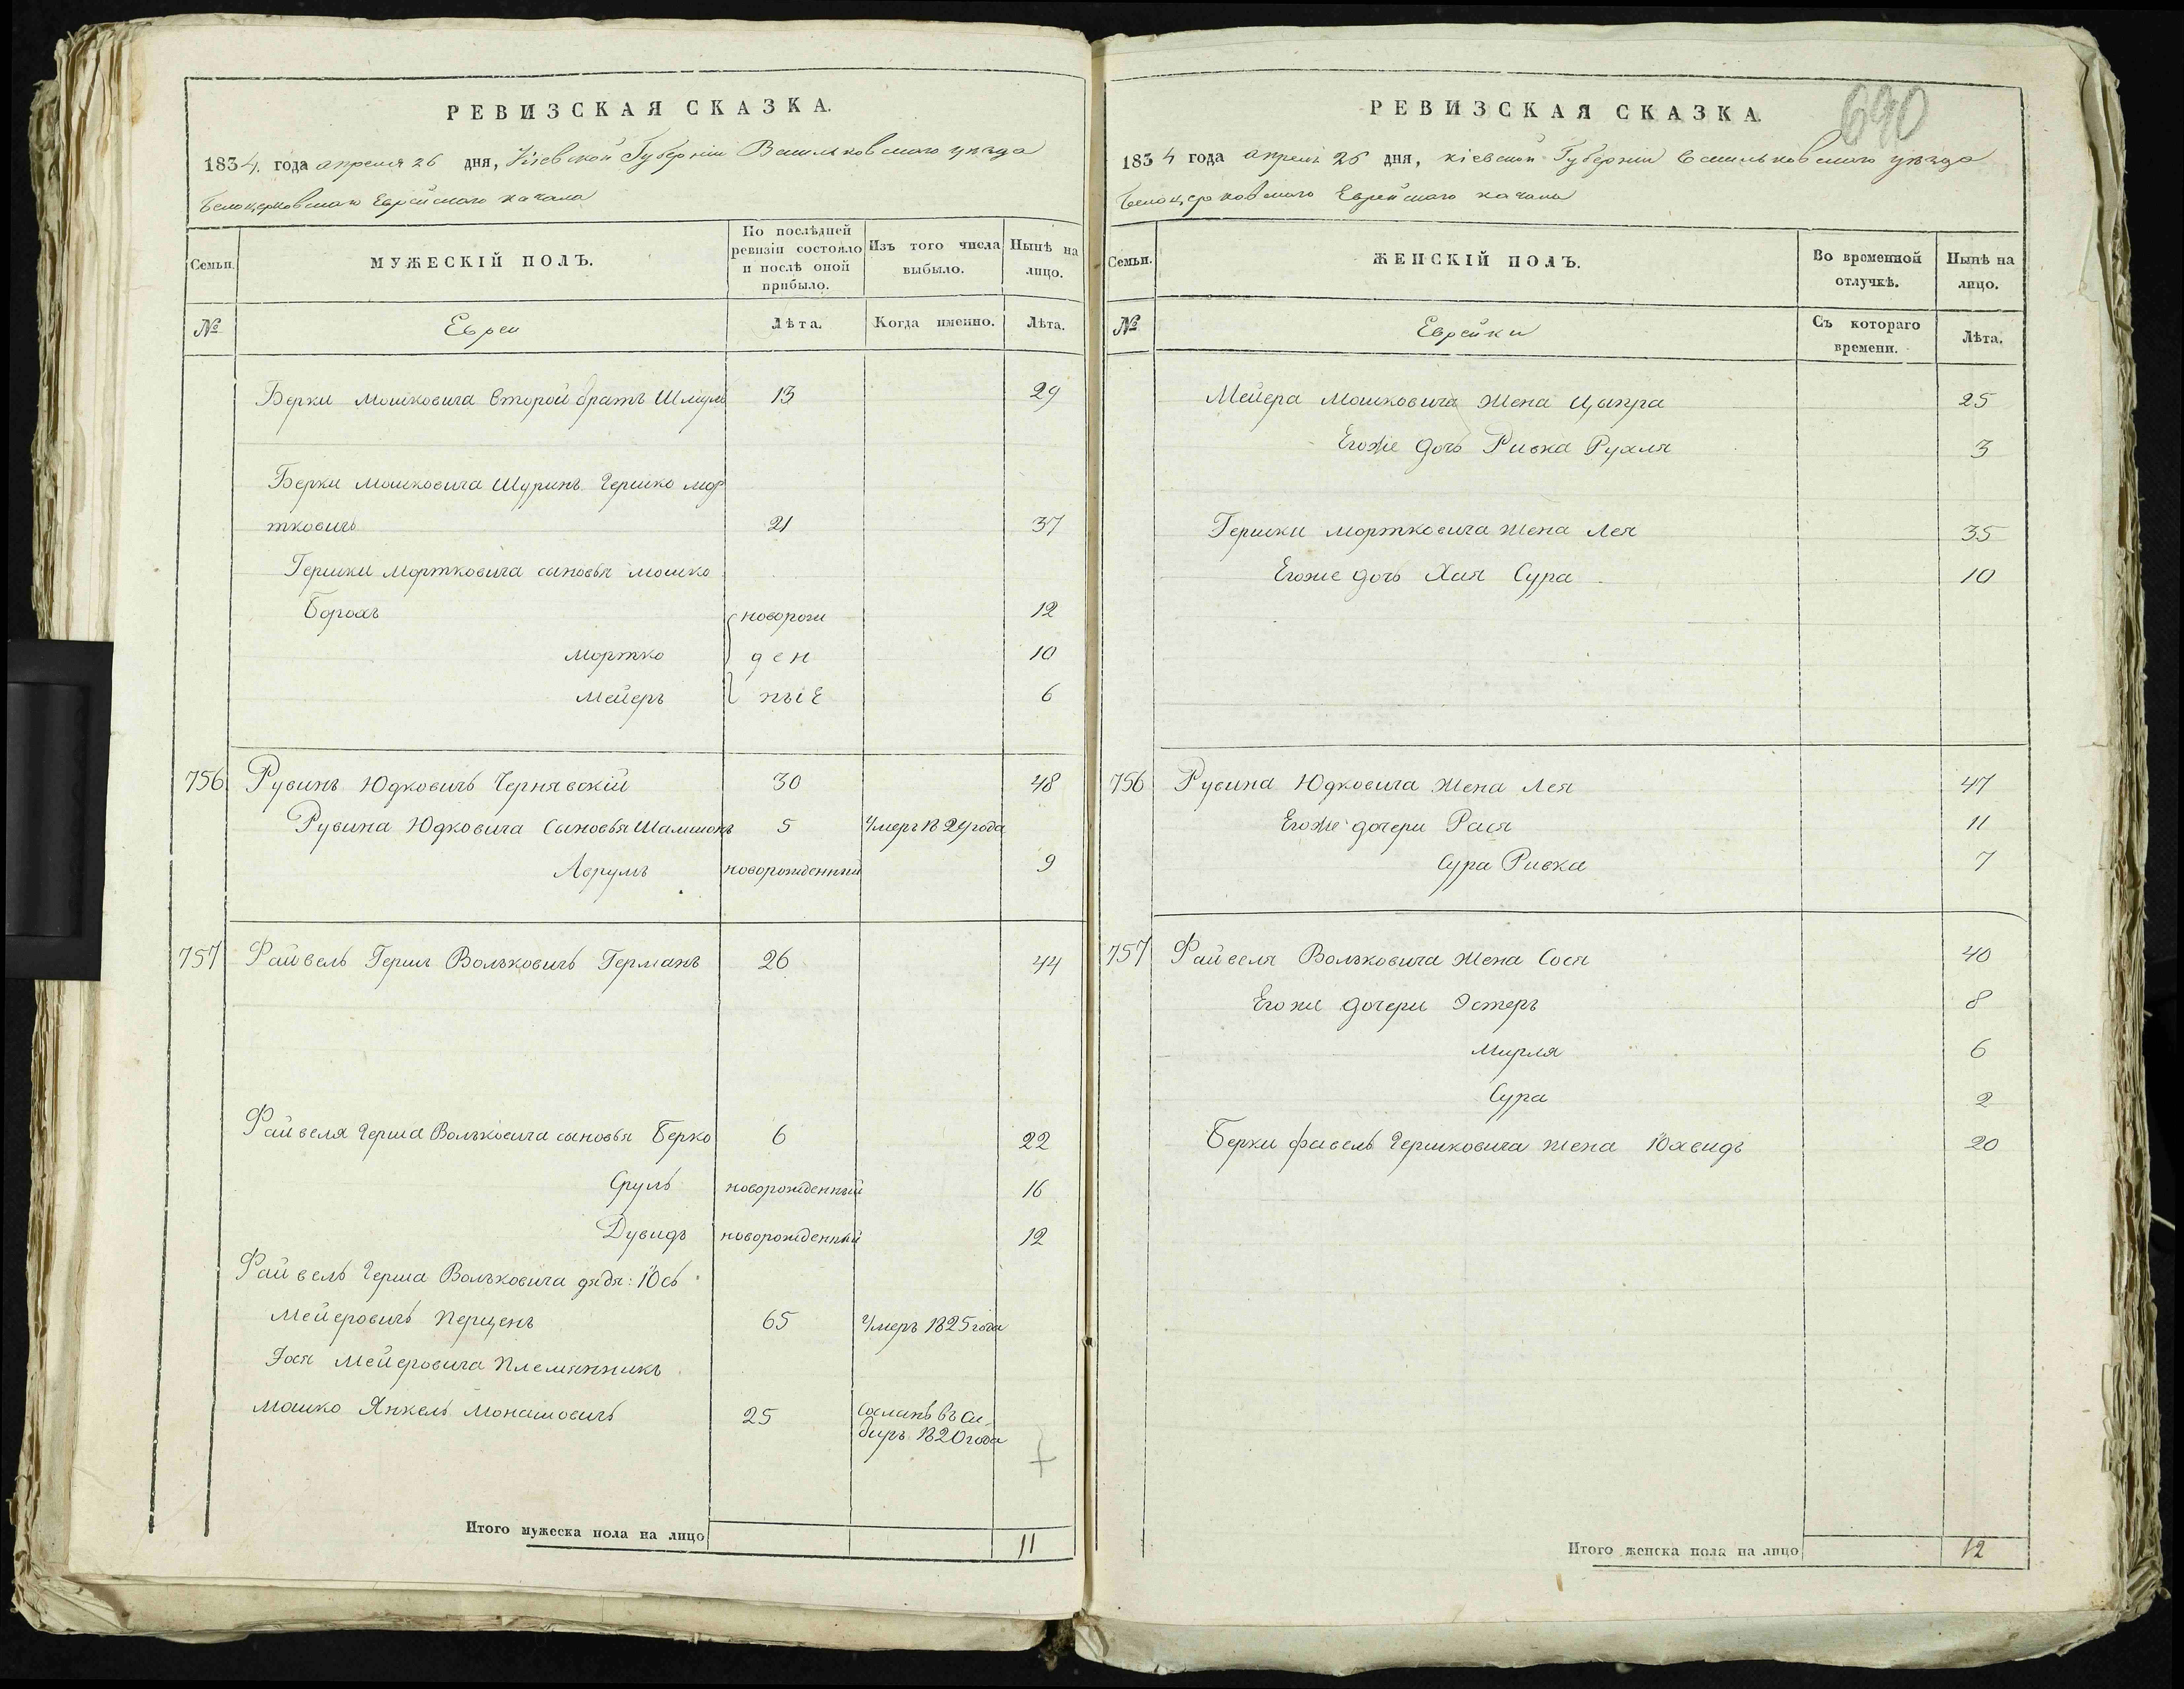 РЕВИЗСКАЯ СКАЗКА.
1834. года апреля 26 дня, Кіевской Губерніи Васильковскаго уезда
Белоцерковскаго Еврейскаго кагала
Семьи.
МУЖЕСКІЙ ПОЛЪ.
По послѣдней ревизіи состояло и послѣ оной прибыло.
Изъ того числа выбыло.
Нынѣ на лицо.
№
Евреи
Лѣта.
Когда именно.
Лѣта.
Берки Мошковича второй братъ Шмуль 13 29
Берки Мошковича Шуринъ Гершко Мор
тковичъ 21 37
Гершки Мортковича сыновья Мошко
Борохъ новорож 12
Мортко ден 10
Мейеръ ные 6
756 Рувинъ Юдковичъ Чернявскій 30 48
Рувина Юдковича Сыновья Шамшонъ 5 Умеръ 1829 года
Аврумъ новорожденный 9
757 Файвель Гершъ Вольковичъ Германъ 26 44
Файвеля Герша Вольковича сыновья Берко 6 22
Сруль новорожденный 16
Дувидъ новорожденный 12
Файвель Герша Вольковича дядя: Іось
Мейеровичъ Перцень 65 Умеръ 1825 года
Іося Мейеровича Племянникъ
Мошко Янкель Монашовичъ 25 Сосланъ въ Си-
биръ 1820 года
Итого мужеска пола на лицо 11
690
РЕВИЗСКАЯ СКАЗКА.
1834 года апреля 26 дня, Кіевской Губерніи Васильковскаго уезда
Белоцерковскаго Еврейскаго кагала
Семьи.
ЖЕНСКІЙ ПОЛЪ.
Во временной отлучкѣ.
Нынѣ на лицо.
№
Еврейки
Съ котораго времени.
Лѣта.
Мейера Мошковича Жена Цыпра 25
Егоже дочь Ривка Рухля 3
Гершки Мортковича жена Лея 35
Егоже дочь Хая Сура 10
756 Рувина Юдковича Жена Лея 47
Егоже дочери Рася 11
Сура Ривка 7
757 Файвеля Вольковича Жена Сося 40
Егоже дочери Эстеръ 8
Мирля 6
Сура 2
Берки Фавель Гершковича жена Юхвидъ 20
Итого женска пола на лицо 12